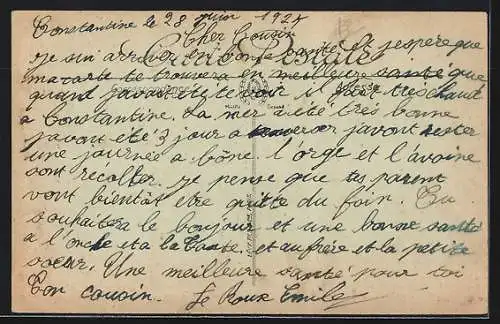 Constantine le 28 juin 1924
Cher Cousin
je sui arriver en bonne santé et j'espère que
ma carte te trouvera en meilleure santé que
quand j'avait été te voir il fait tres chaud
a Constantine. La mer a été très bonne
j'avont été 3 jour a traverser j'avont rester
une journée a bône. l'orge et l'avoine
sont recolter. je pense que tes parent
vont bientôt etre quitte du foin. Tu
souhaitera le bonjour et une bonne santé
a l'oncle et a la tante et au frère et la petite
soeur. Une meilleure santé pour toi
Ton cousin. Le Roux Emile